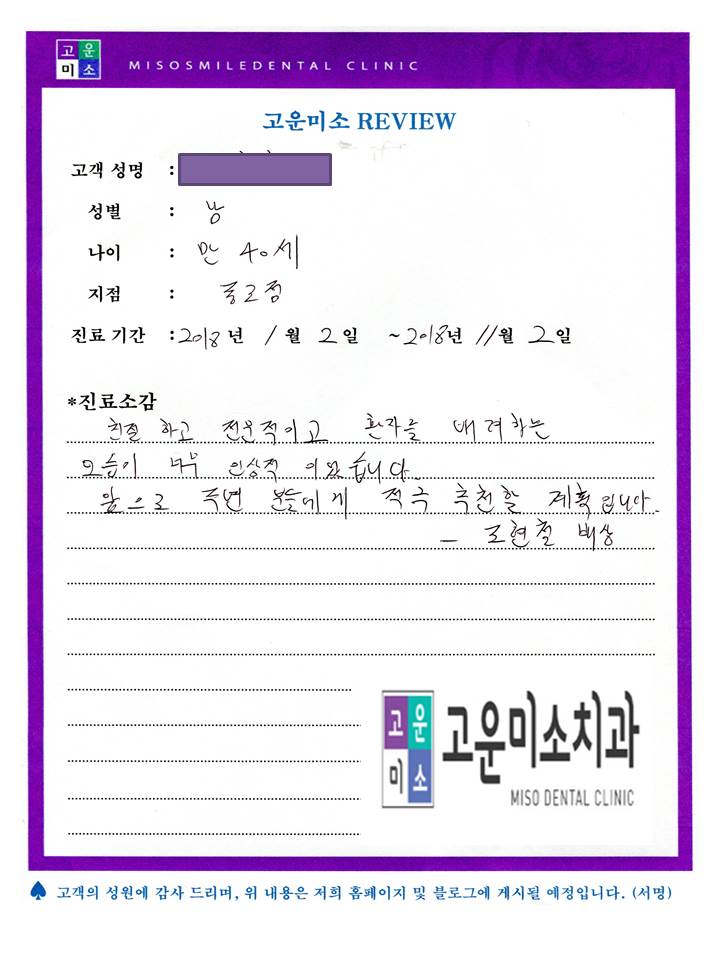 고운
미소
MISOSMILEDENTAL CLINIC
고운미소 REVIEW
고객 성명 :
성별 : 남
나이 : 만 40세
지점 : 종로점
진료 기간 : 2018 년 1 월 2 일 ~ 2018년 11월 2일
*진료소감
친절 하고 전문적이고 환자를 배려하는
모습이 너무 인상적 이었습니다.
앞으로 주변 분들에게 적극 추천할 계획 입니다.
- 조현철 배상
고운
미소
고운미소치과
MISO DENTAL CLINIC
♠ 고객의 성원에 감사 드리며, 위 내용은 저희 홈페이지 및 블로그에 게시될 예정입니다. (서명)